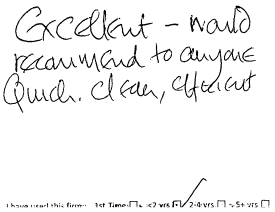 Excellent - would
recommend to anyone
Quick. clean, efficient
I have used this firm: 1st Time <2 yrs 2-4 yrs 5+ yrs